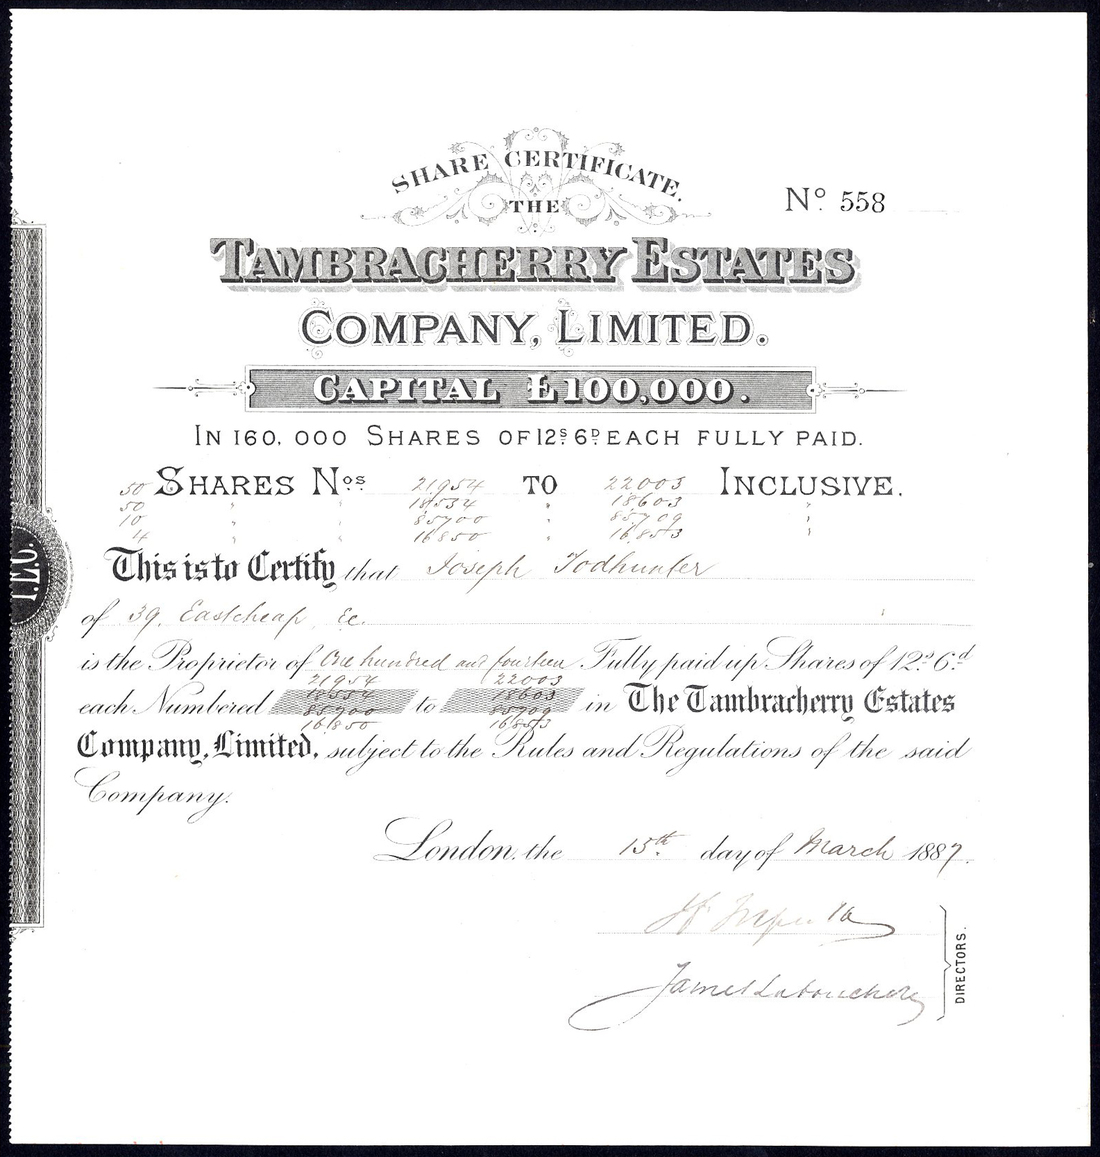 SHARE CERTIFICATE.
Nº 558
THE
TAMBRACHERRY ESTATES
COMPANY, LIMITED.
CAPITAL £100,000.
IN 160,000 SHARES OF 12S. 6D. EACH FULLY PAID.
50 SHARES Nos 21954 TO 22003 INCLUSIVE.
50 " " 18554 " 18603 "
10 " " 85700 " 85709 "
4 " " 16850 " 16853 "
T.E.C.
This is to Certify that Joseph Todhunter
of 39, Eastcheap, Ec.
is the Proprietor of One hundred and fourteen Fully paid up Shares of 12s 6d
21954 22003
each Numbered 18554 to 18603 in The Tambracherry Estates
85700 85709
16850 16853
Company, Limited, subject to the Rules and Regulations of the said
Company.
London, the 15th day of March 1887.
James Labouchere
DIRECTORS.